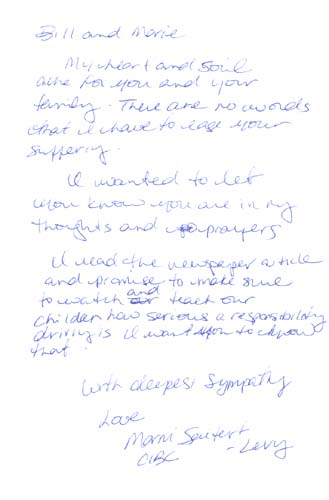 Bill and Marie
My heart and soul
ache for you and your
family. There are no words
that I have to ease your
suffering.
I wanted to let
you know you are in my
thoughts and prayers
I read the newspaper article
and promise to make sure
to watch and teach our
children how serious a responsibility
driving is I want you to know
that.
With deepest Sympathy
Love
Marni - Levy
CIBC